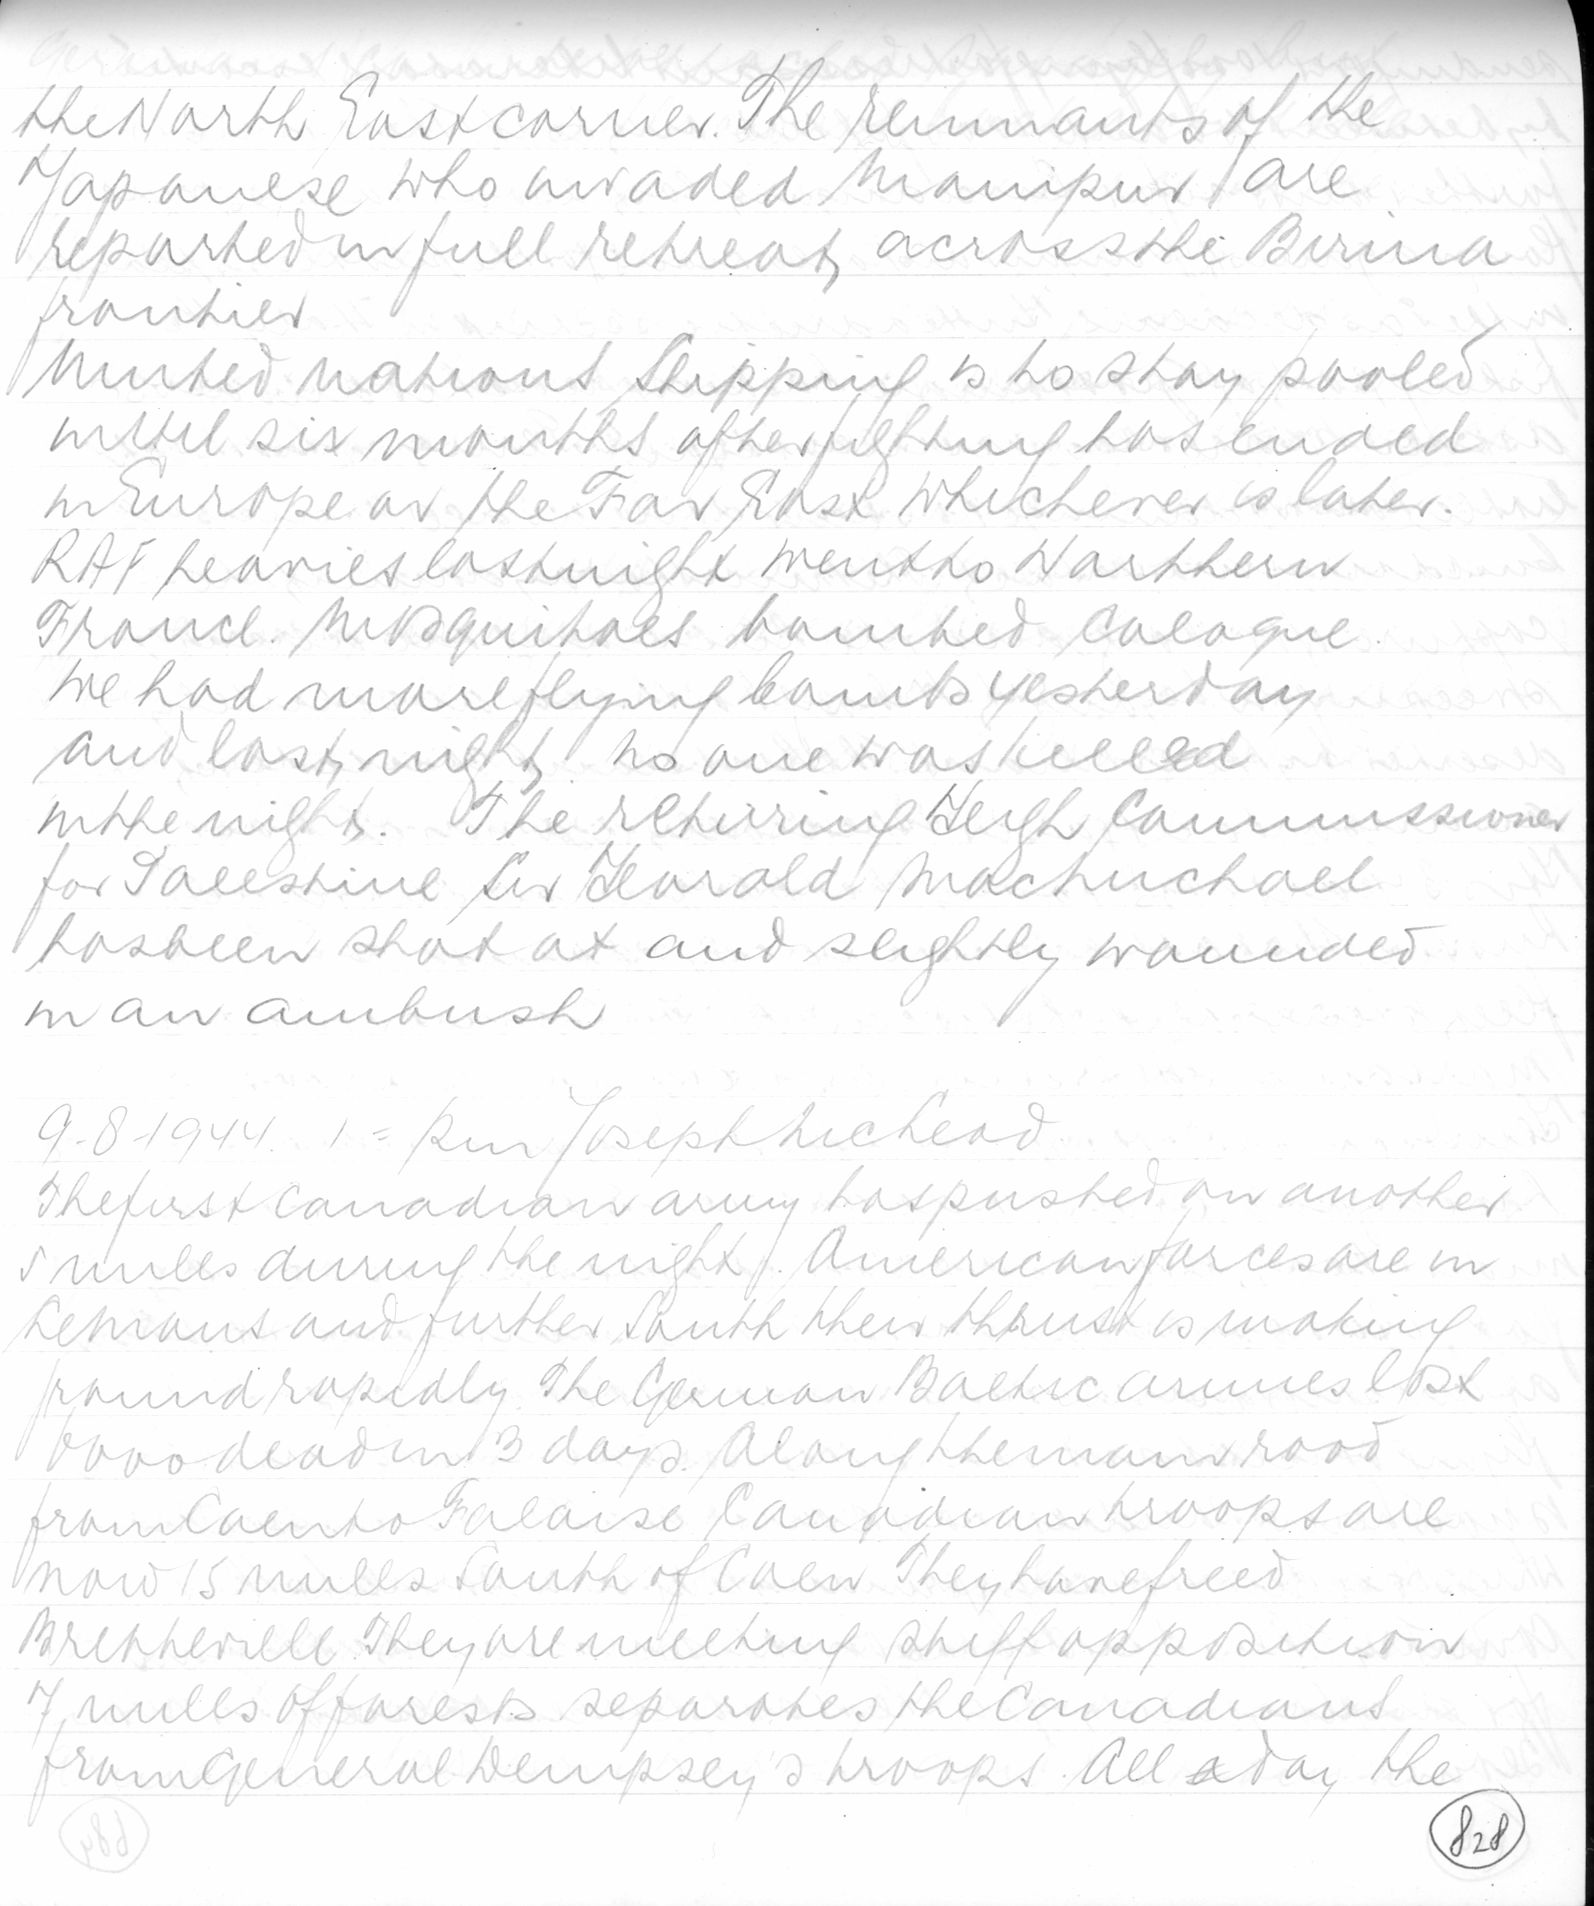 the North East corner. The remnants of the
Japanese who invaded Manipur are
reported in full retreat across the Burma
frontier
United Nations Shipping is to stay pooled
until six months after fighting has ended
in Europe or the Far East whichever is later.
RAF heavies last night went to Northern
France. Mosquitoes bombed Cologne.
We had more flying bombs yesterday
and last night no one was killed
in the night. The retiring High Commissioner
for Palestine Sir Harold MacMichael
has been shot at and slightly wounded
in an ambush
9-8-1944 1 = pm Joseph McLeod
The first Canadian army has pushed on another
5 miles during the night. American forces are in
Le Mans and further South their thrust is making
ground rapidly. The German Baltic armies lost
6000 dead in 3 days. Along the main road
from Caen to Falaise Canadian troops are
now 15 miles South of Caen They have freed
Bretteville They are meeting stiff opposition
7 miles of forests separates the Canadians
from General Dempsey's troops. All day the
828